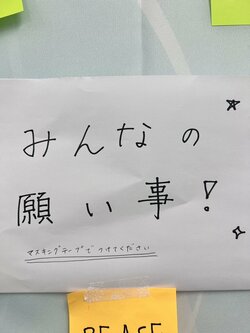 みんなの
願い事!
マスキングテープでつけてください
PEACE